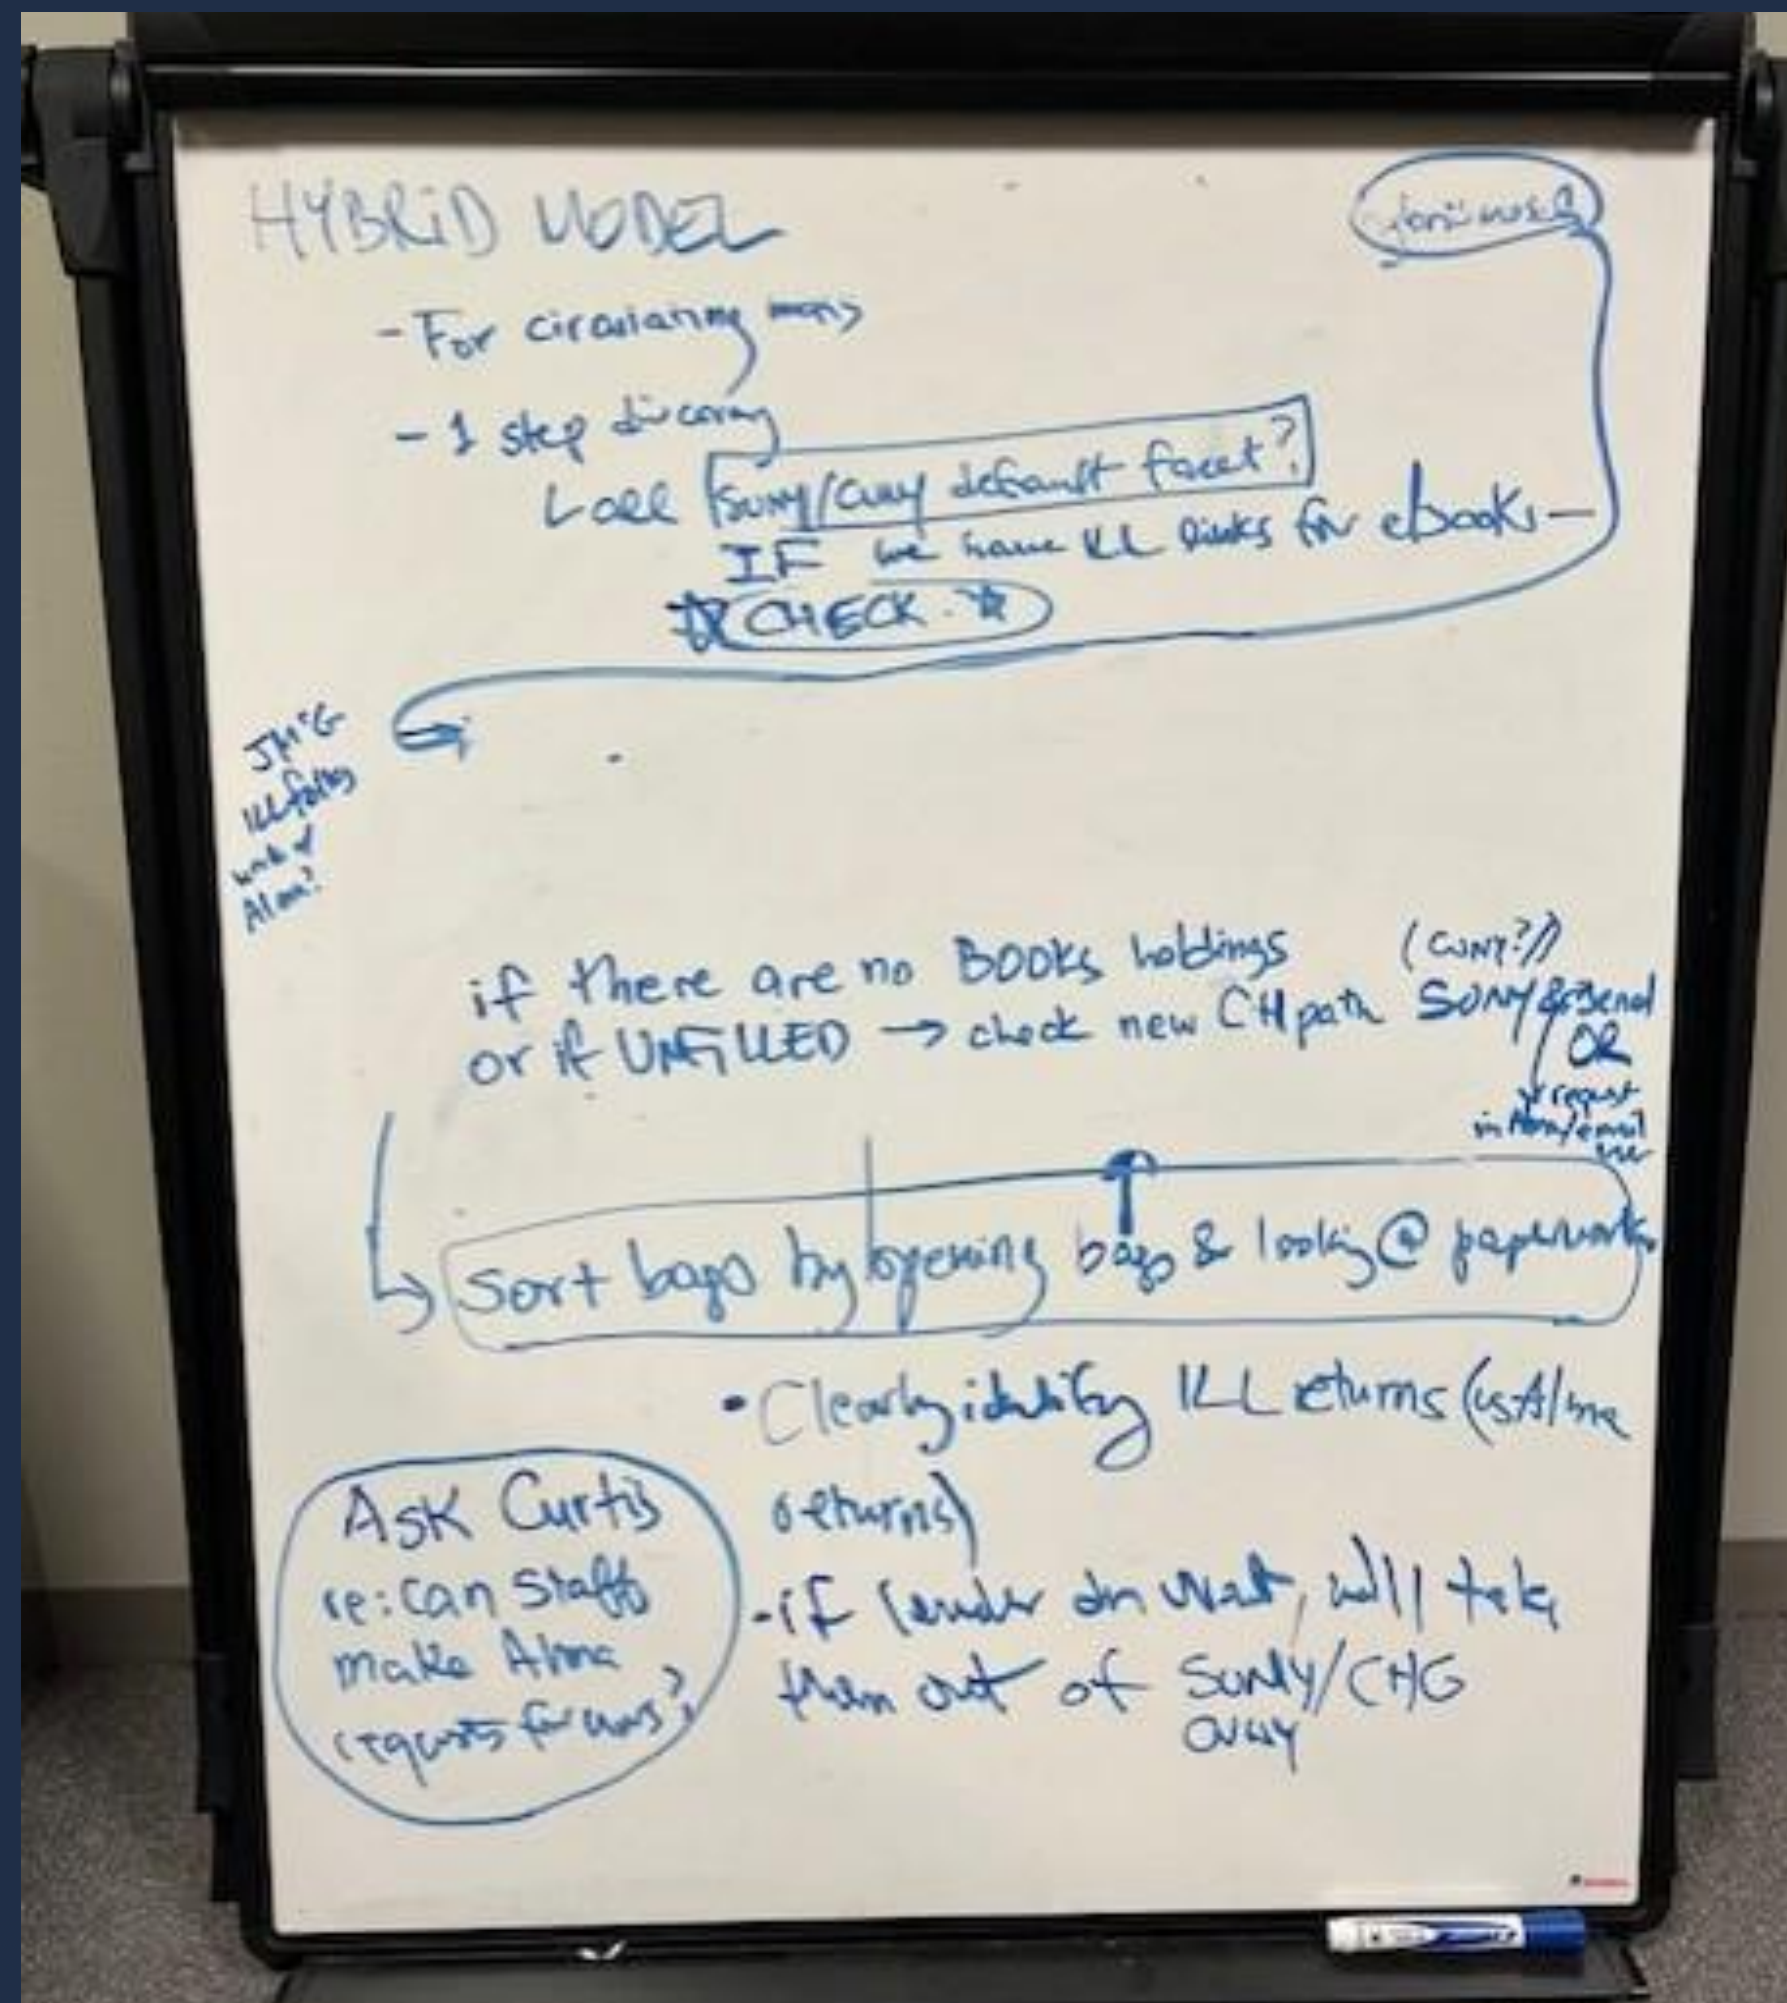 HYBRID MODEL
- For circulating
- 1 step
all SUNY/CUNY default facet?
IF we have ILL links for ebooks -
CHECK.
ILL folks
Alma?
if there are no BOOKS holdings (CUNY?)
or if UNFILLED → check new CH path SUNY & send
OR
request
in Alma/email
Sort bags by opening bags & looking @ paperwork
• Clearly identify ILL returns (vs Alma
returns)
- if lender don want, will take
them out of SUNY/CHG
CUNY
Ask Curtis
re: can staff
make Alma
requests for users?